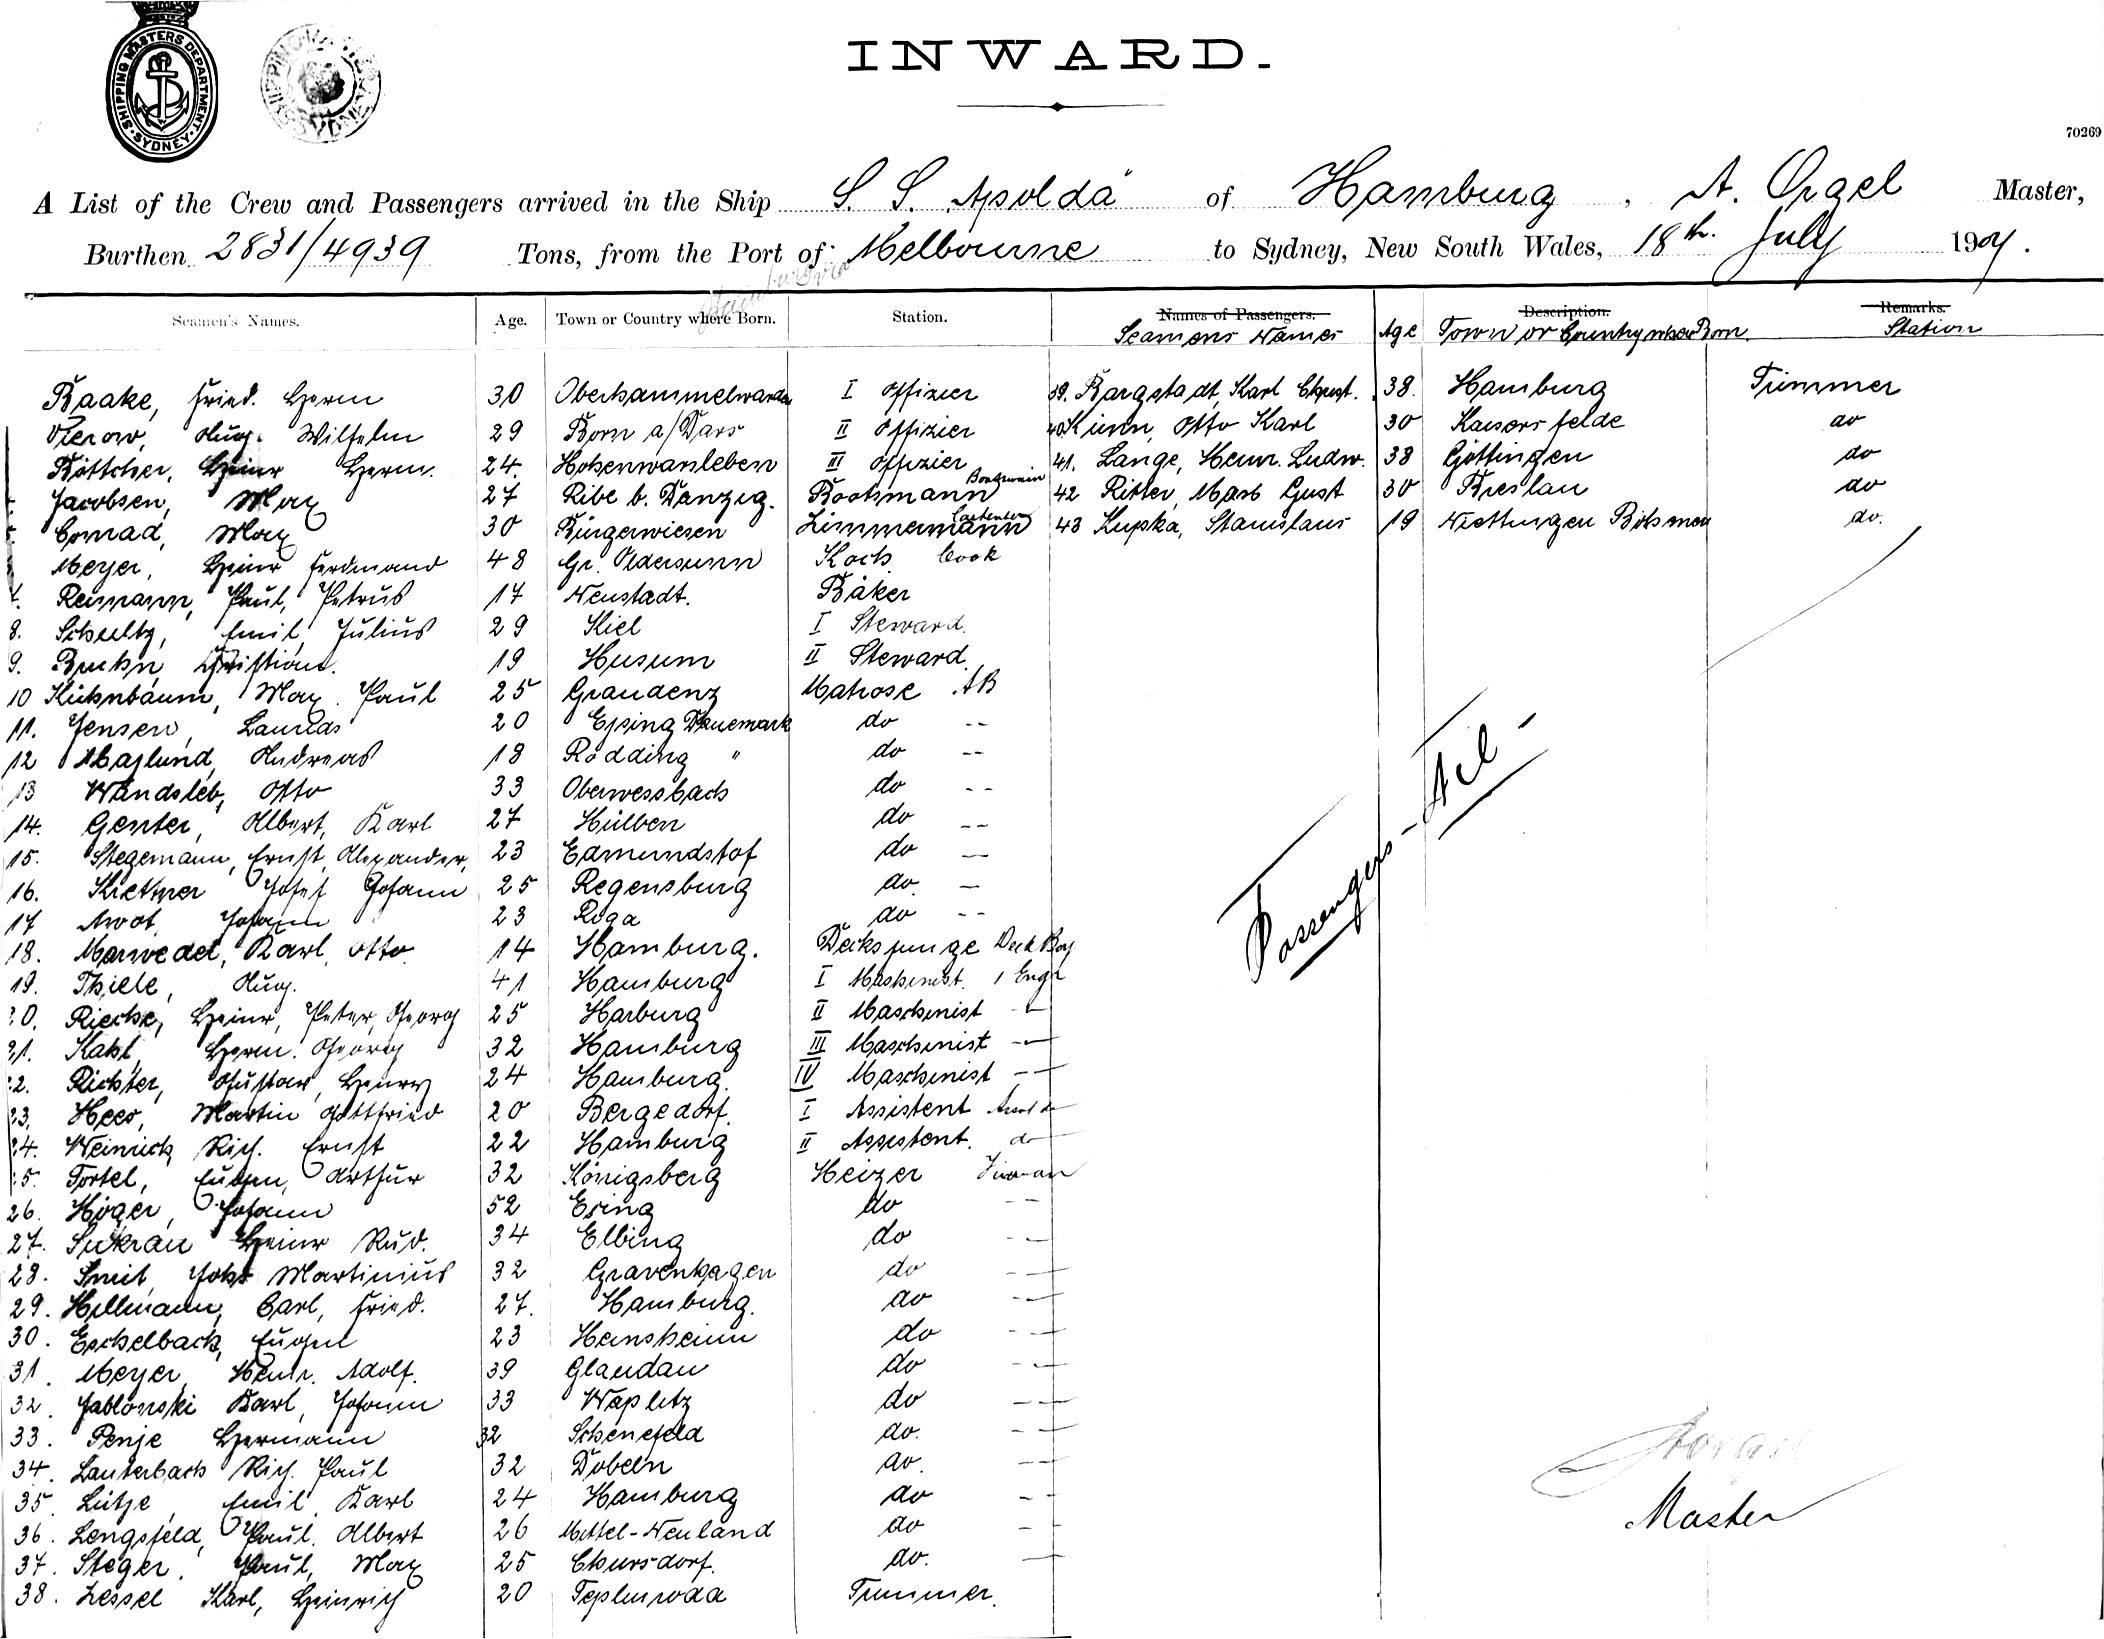 SHIPPING MASTERS DEPARTMENT. SYDNEY.
INWARD.
70269
A List of the Crew and Passengers arrived in the Ship S. S. Apolda of Hamburg, A. Orgel Master,
Burthen 2831/4939 Tons, from the Port of Melbourne to Sydney, New South Wales, 18th. July 190
Seamen's Names. Age. Town or Country where Born. Station. Names of Passengers. Age Description. Remarks.
Seamens Names Town or Country where Born. Station
Baake, Fried. Herm 30 Oberhammelwarden I Offizier 39. Bargstadt, Karl Christ. 38. Hamburg Trimmer
Vierow, Aug. Wilhelm 29 Born a/Dars II Offizier 40 Otto Karl 30 Kaisersfelde do
Böttcher, Heinr Herm. 24. Hohenwarsleben III Offizier 41. Lange, Heinr. Ludw. 38 Göttingen do
Jacobsen, Max 27 Ribe b. Danzig. Bootsmann Boatswain 42 Ritter, Max Gust 30 Breslau do
Conrad, Max 30 Bürgerwiesen Zimmermann Carpenter 43 Kupka, Stanislaus 19 Böhmen do.
Meyer, Heinr Ferdinand 48 Gr. Oldersum Koch Cook
7. Reimann, Paul, Petrus 17 Neustadt. Bäker
8. Schultz, Emil, Julius 29 Kiel I Steward.
9. Bruhn, Christian. 19 Husum II Steward.
10 Kirhnbaum, Max. Paul 25 Graudenz Matrose AB
11. Jensen, Lauritas 20 Danemark do --
12 Majlund, Andreas 18 Rödding " do --
13 Wandsleb, Otto 33 Oberwessbach do --
14. Genter, Albert, Karl 27 Hülben do --
15. Stegemann, Ernst, Alexander, 23 Edmundshof do --
16. Josef Johann 25 Regensburg do. -
17 Johann 23 Riga do --
18. Marwedel, Karl, Otto 14 Hamburg. Decksjunge Deck Boy
19. Thiele, Aug. 41 Hamburg I Maschinist. 1 Engr
20. Riecke, Heinr, Peter, Georg 25 Harburg II Maschinist --
21. Kahl, Herm. Georg 32 Hamburg III Maschinist --
22. Richter, Gustav, Henry 24 Hamburg. IV Maschinist --
23. Hees, Martin Gottfried 20 Bergedorf. I Assistent
24. Weinrich Rich. Ernst 22 Hamburg II Assistent. do
25. Tortel, Eugen, Arthur 32 Königsberg Heizer Fireman
26. Höger, Johann 52 Ering do --
27. Sukrau Heinr Rud. 34 Elbing do --
28. Smit, Johs Martinius 32 Gravenhagen do --
29. Hillmann, Carl, Fried. 27. Hamburg. do --
30. Eschelbach, Eugen 23 Heinsheim do --
31. Meyer, Heinr. Adolf. 39 Glaudau do --
32. Jablonski Karl, Johann 33 Waplitz do --
33. Penje Hermann 32 Schenefeld do. --
34. Lauterbach Rich. Paul 32 Döbeln do. --
35. Lütje, Emil Karl 24 Hamburg do --
36. Lengsfeld, Paul. Albert 26 Mittel-Neuland do --
37. Steger, Paul, Max 25 Chursdorf. do. --
38. Zessel Karl, Heinrich 20 Tepliwoda Trimmer.
Passengers - Nil -
Master